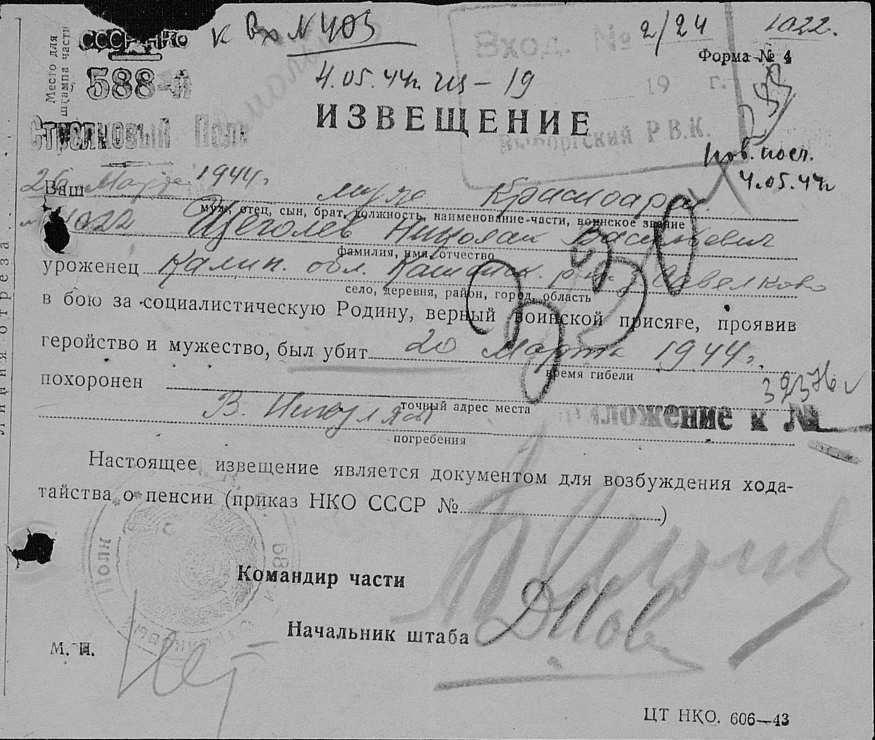 Место для
штампа части
СССР-НКО
588-й
Стрелковый Полк
к Вх № 403
4.05.44г.
Вход. № 2/24
1022.
Форма № 4
19 г.
Выборгский Р.В.К.
ИЗВЕЩЕНИЕ
4.05.44г
26 Марта 1944г.
№ 1022
Ваш муж Красноарм.
муж, отец, сын, брат, должность, наименование части, воинское звание
Щеголев Николай Васильевич
фамилия, имя, отчество
уроженец Калин. обл. Кашинск. р-н Савелково
село, деревня, район, город, область
в бою за социалистическую Родину, верный воинской присяге, проявив
геройство и мужество, был убит 20 Марта 1944г.
время гибели
похоронен
точный адрес места
погребения
Приложение к №
Линия отреза
Настоящее извещение является документом для возбуждения хода-
тайства о пенсии (приказ НКО СССР № )
Командир части
Начальник штаба
М. П.
ЦТ НКО. 606—43